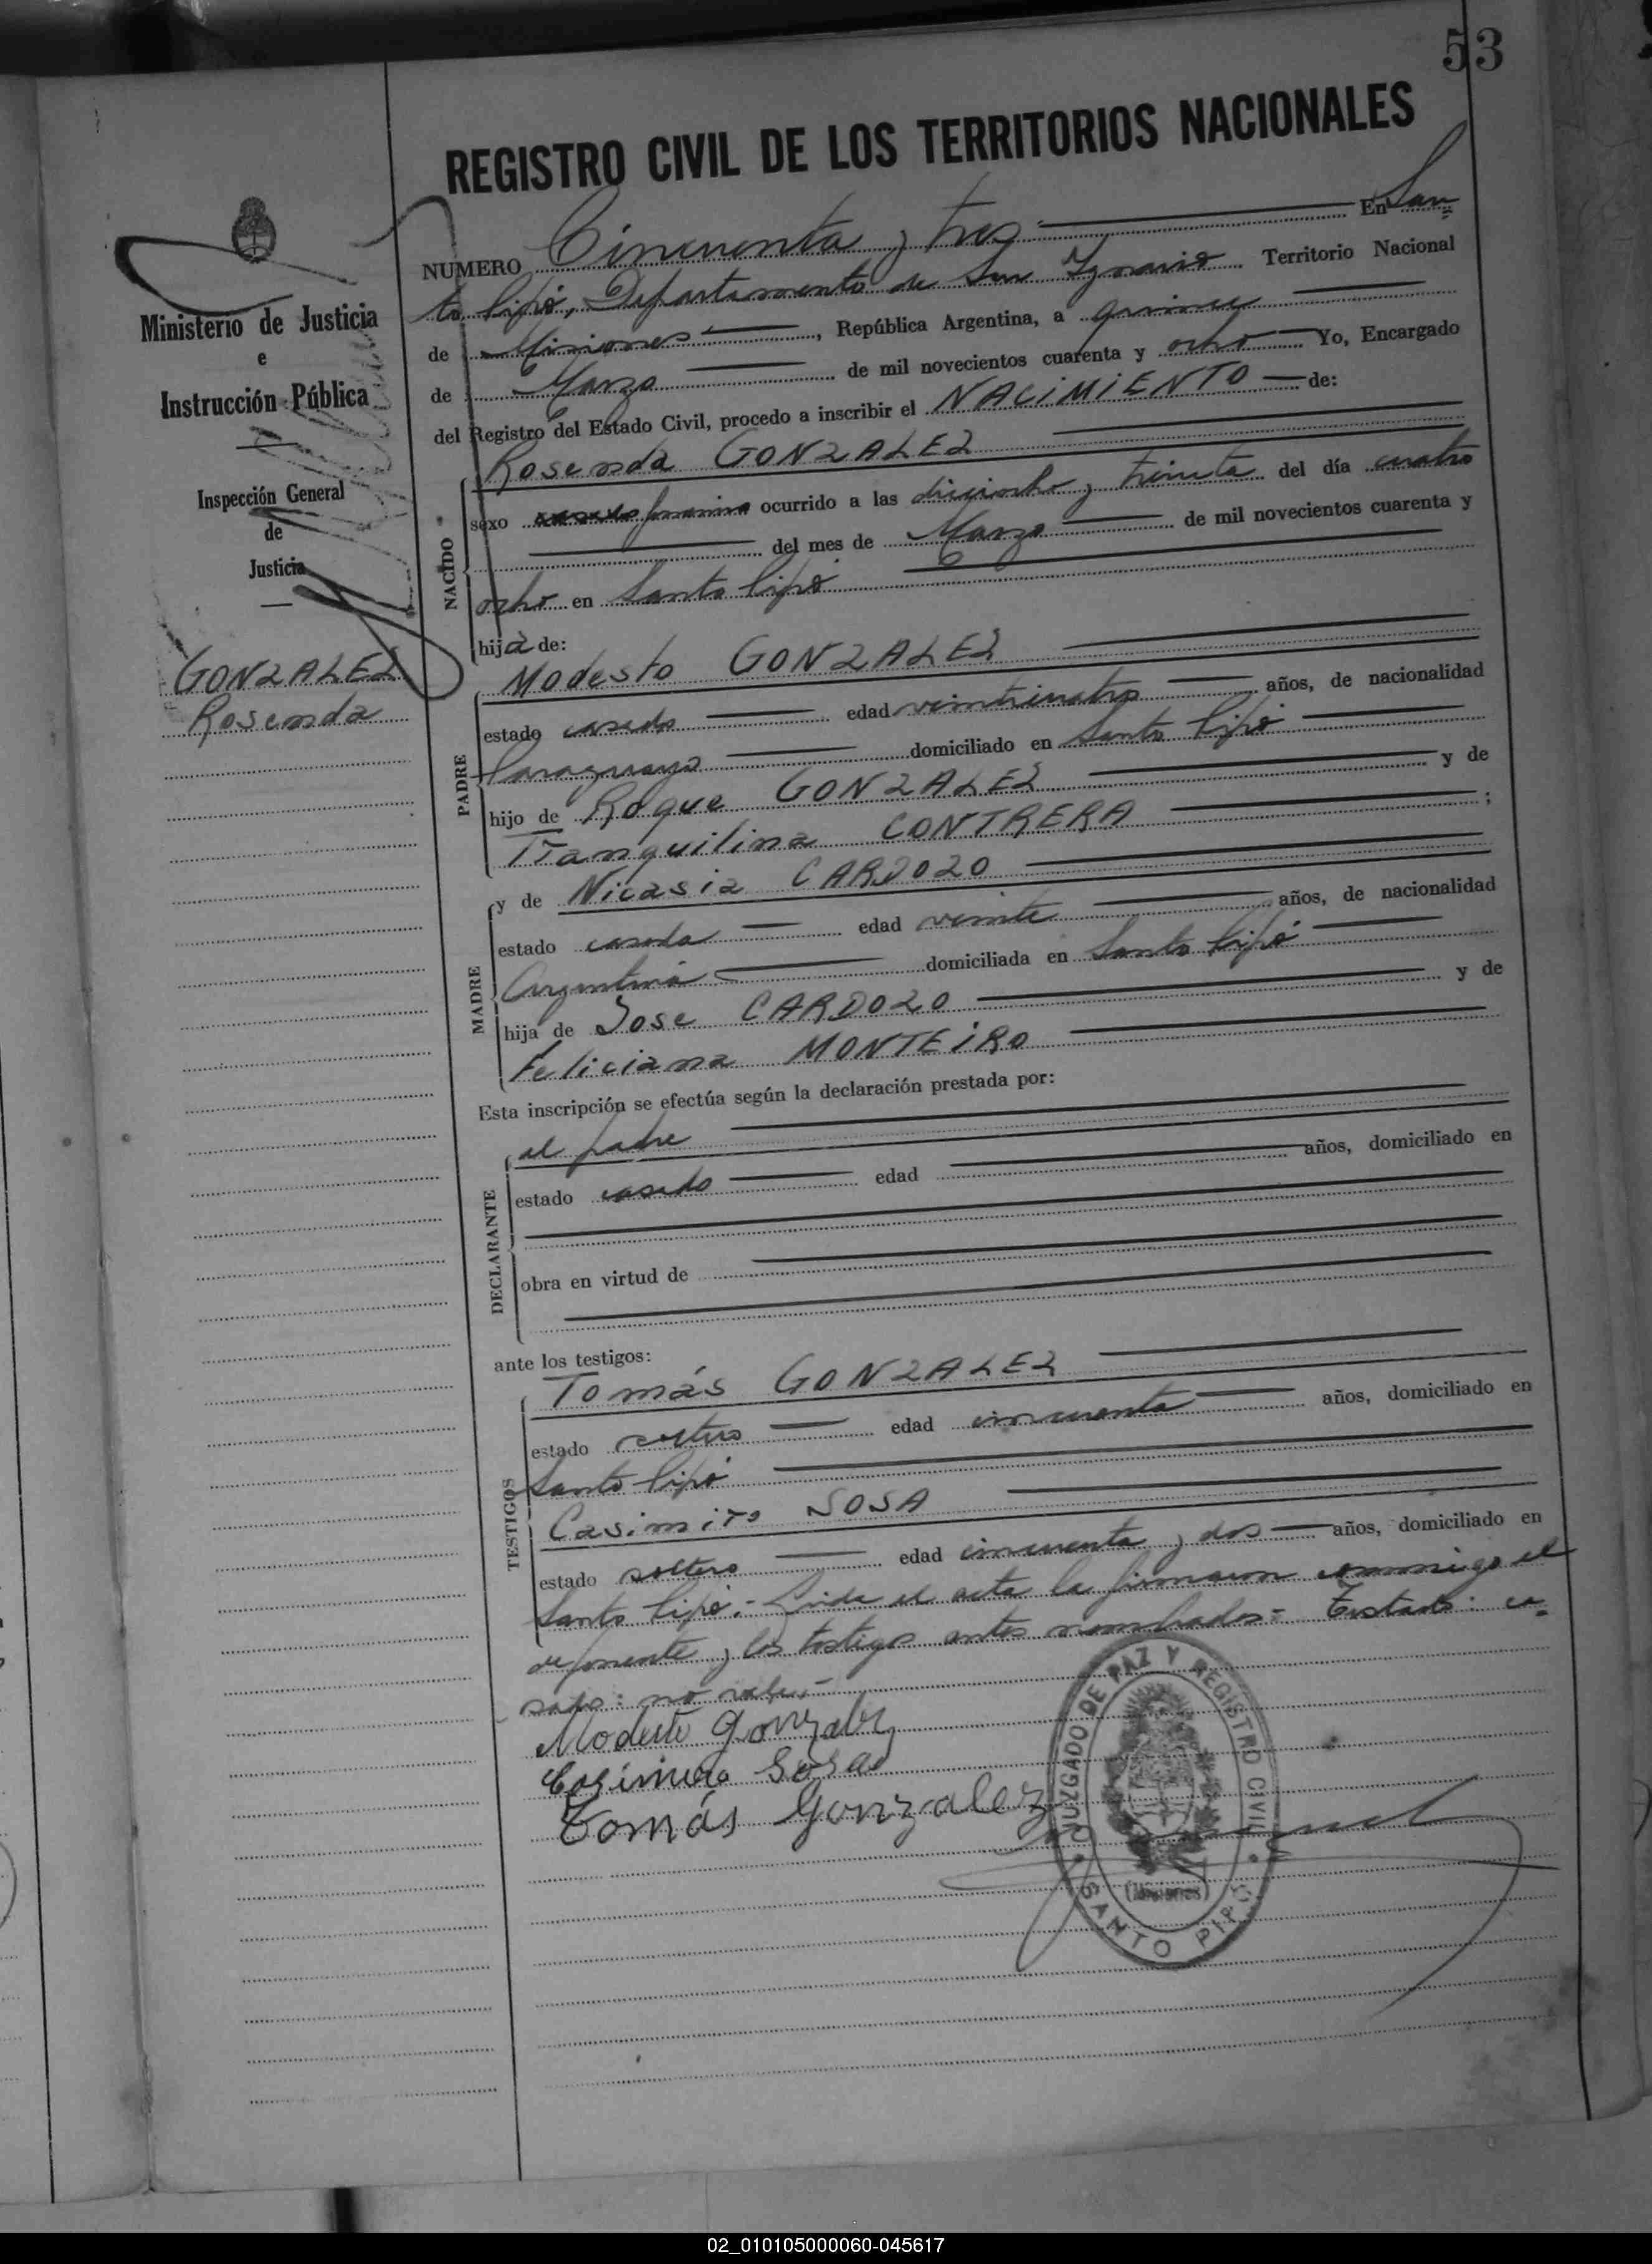 53
REGISTRO CIVIL DE LOS TERRITORIOS NACIONALES
NUMERO Cincuenta y tres En San
to Pipó, Departamento de San Ignacio Territorio Nacional
de Misiones, República Argentina, a quince
de Marzo de mil novecientos cuarenta y ocho Yo, Encargado
del Registro del Estado Civil, procedo a inscribir el NACIMIENTO de:
Ministerio de Justicia
e
Instrucción Pública
Inspección General
de
Justicia
GONZALEZ
Rosenda
NACIDO
Rosenda GONZALEZ
sexo casado femenino ocurrido a las dieciocho y treinta del día cuatro
del mes de Marzo de mil novecientos cuarenta y
ocho en Santo Pipó
hija de:
PADRE
Modesto GONZALEZ
estado casado edad veinticuatro años, de nacionalidad
Paraguaya domiciliado en Santo Pipó
hijo de Roque GONZALEZ y de
Tranquilina CONTRERA ;
MADRE
y de Nicasia CARDOZO
estado casada edad veinte años, de nacionalidad
Argentina domiciliada en Santo Pipó
hija de Jose CARDOZO y de
Feliciana MONTEiRO
Esta inscripción se efectúa según la declaración prestada por:
DECLARANTE
el padre
estado casado edad años, domiciliado en
obra en virtud de
ante los testigos:
TESTIGOS
Tomás GONZALEZ
estado soltero edad cincuenta años, domiciliado en
Santo Pipó
Casimiro SOSA
estado soltero edad cincuenta y dos años, domiciliado en
Santo Pipó.- Leída el acta la firmaron conmigo el
deponente y los testigos antes nombrados= Testado: ca=
sado: no vale.-
Modesto Gonzalez
Casimiro Sosa
Tomás Gonzalez
JUZGADO DE PAZ Y REGISTRO CIVIL
(Misiones)
SANTO PIPO
02_010105000060-045617